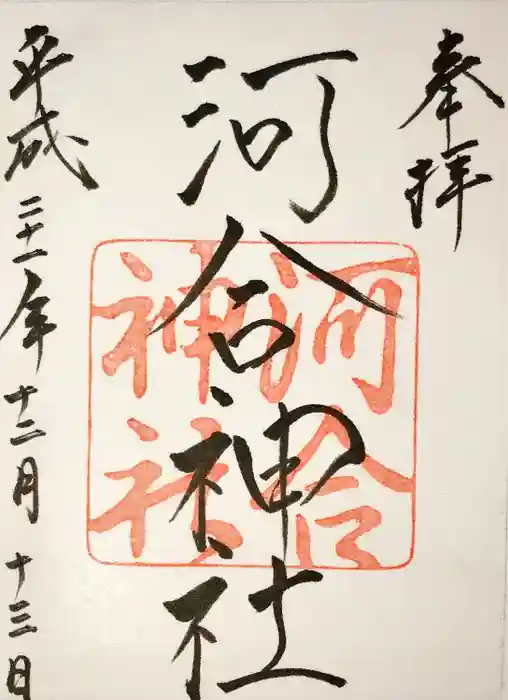 奉拝
河合神社
河合
神社
平成二十一年十二月十三日